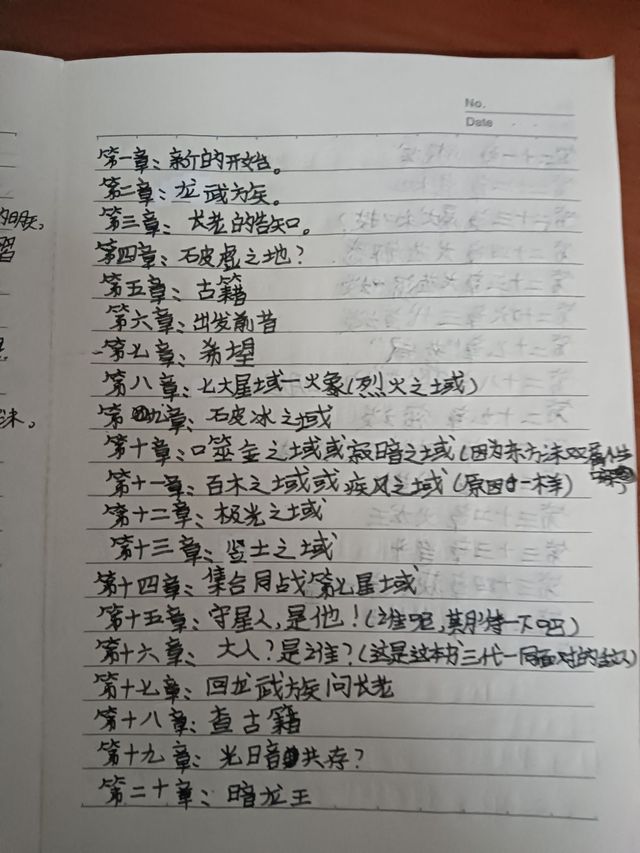 No.
Date
第一章：新的开始。
第二章：龙武族。
第三章：长老的告知。
第四章：破虚之地？
第五章：古籍
第六章：出发前昔
第七章：希望
第八章：七大星域一火象（烈火之域）
第九章：破冰之域
第十章：噬金之域或寂暗之域（因为东方沫双属性
第十一章：百木之域或疾风之域（原因一样）
第十二章：极光之域
第十三章：坚土之域
第十四章：集合同战第七星域
第十五章：守星人，是他！（谁呢，期待一下吧）
第十六章：大人？是谁？（这是这本书三代一同面对的敌人）
第十七章：回龙武族问长老
第十八章：查古籍
第十九章：光暗共存？
第二十章：暗龙王
习
沫。